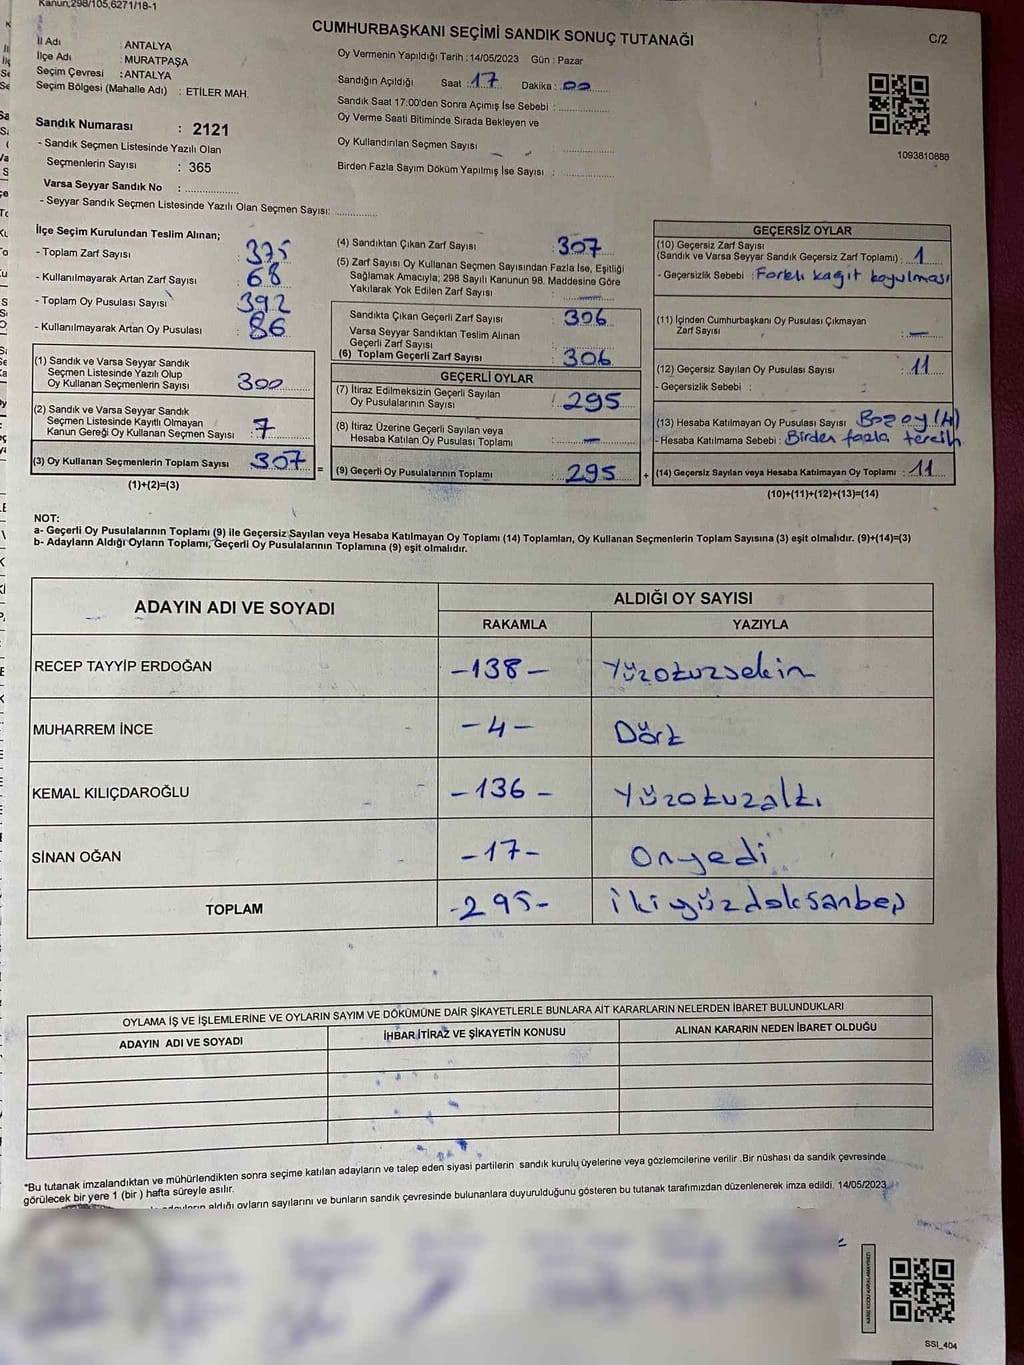 Kanun;298/105,6271/18-1
CUMHURBAŞKANI SEÇİMİ SANDIK SONUÇ TUTANAĞI
C/2
İl Adı : ANTALYA
İlçe Adı : MURATPAŞA
Seçim Çevresi : ANTALYA
Seçim Bölgesi (Mahalle Adı) : ETİLER MAH.
Sandık Numarası : 2121
- Sandık Seçmen Listesinde Yazılı Olan
Seçmenlerin Sayısı : 365
Varsa Seyyar Sandık No :
- Seyyar Sandık Seçmen Listesinde Yazılı Olan Seçmen Sayısı:
Oy Vermenin Yapıldığı Tarih : 14/05/2023 Gün : Pazar
Sandığın Açıldığı Saat : 17 Dakika : 00
Sandık Saat 17:00'den Sonra Açımış İse Sebebi :
Oy Verme Saati Bitiminde Sırada Bekleyen ve
Oy Kullandırılan Seçmen Sayısı :
Birden Fazla Sayım Döküm Yapılmış İse Sayısı :
1093810888
İlçe Seçim Kurulundan Teslim Alınan;
- Toplam Zarf Sayısı : 375
- Kullanılmayarak Artan Zarf Sayısı : 68
- Toplam Oy Pusulası Sayısı : 392
- Kullanılmayarak Artan Oy Pusulası : 86
(1) Sandık ve Varsa Seyyar Sandık
Seçmen Listesinde Yazılı Olup
Oy Kullanan Seçmenlerin Sayısı : 300
(2) Sandık ve Varsa Seyyar Sandık
Seçmen Listesinde Kayıtlı Olmayan
Kanun Gereği Oy Kullanan Seçmen Sayısı : 7
(3) Oy Kullanan Seçmenlerin Toplam Sayısı : 307 =
(1)+(2)=(3)
(4) Sandıktan Çıkan Zarf Sayısı : 307
(5) Zarf Sayısı Oy Kullanan Seçmen Sayısından Fazla İse, Eşitliği
Sağlamak Amacıyla; 298 Sayılı Kanunun 98. Maddesine Göre
Yakılarak Yok Edilen Zarf Sayısı : —
Sandıkta Çıkan Geçerli Zarf Sayısı : 306
Varsa Seyyar Sandıktan Teslim Alınan
Geçerli Zarf Sayısı :
(6) Toplam Geçerli Zarf Sayısı : 306
GEÇERLİ OYLAR
(7) İtiraz Edilmeksizin Geçerli Sayılan
Oy Pusulalarının Sayısı : 295
(8) İtiraz Üzerine Geçerli Sayılan veya
Hesaba Katılan Oy Pusulası Toplamı : —
(9) Geçerli Oy Pusulalarının Toplamı : 295 +
GEÇERSİZ OYLAR
(10) Geçersiz Zarf Sayısı
(Sandık ve Varsa Seyyar Sandık Geçersiz Zarf Toplamı) : 1
- Geçersizlik Sebebi : Farklı kağıt koyulması
(11) İçinden Cumhurbaşkanı Oy Pusulası Çıkmayan
Zarf Sayısı : —
(12) Geçersiz Sayılan Oy Pusulası Sayısı : 11
- Geçersizlik Sebebi :
(13) Hesaba Katılmayan Oy Pusulası Sayısı : Boş oy (4)
- Hesaba Katılmama Sebebi : Birden fazla tercih
(14) Geçersiz Sayılan veya Hesaba Katılmayan Oy Toplamı : 11
(10)+(11)+(12)+(13)=(14)
NOT:
a- Geçerli Oy Pusulalarının Toplamı (9) ile Geçersiz Sayılan veya Hesaba Katılmayan Oy Toplamı (14) Toplamları, Oy Kullanan Seçmenlerin Toplam Sayısına (3) eşit olmalıdır. (9)+(14)=(3)
b- Adayların Aldığı Oyların Toplamı, Geçerli Oy Pusulalarının Toplamına (9) eşit olmalıdır.
ADAYIN ADI VE SOYADI
ALDIĞI OY SAYISI
RAKAMLA YAZIYLA
RECEP TAYYİP ERDOĞAN -138- Yüzotuzsekiz
MUHARREM İNCE -4- Dört
KEMAL KILIÇDAROĞLU -136- Yüzotuzaltı
SİNAN OĞAN -17- Onyedi
TOPLAM -295- İkiyüzdoksanbeş
OYLAMA İŞ VE İŞLEMLERİNE VE OYLARIN SAYIM VE DÖKÜMÜNE DAİR ŞİKAYETLERLE BUNLARA AİT KARARLARIN NELERDEN İBARET BULUNDUKLARI
ADAYIN ADI VE SOYADI İHBAR,İTİRAZ VE ŞİKAYETİN KONUSU ALINAN KARARIN NEDEN İBARET OLDUĞU
*Bu tutanak imzalandıktan ve mühürlendikten sonra seçime katılan adayların ve talep eden siyasi partilerin sandık kurulu üyelerine veya gözlemcilerine verilir .Bir nüshası da sandık çevresinde
görülecek bir yere 1 (bir ) hafta süreyle asılır.
aldığı oyların sayılarını ve bunların sandık çevresinde bulunanlara duyurulduğunu gösteren bu tutanak tarafımızdan düzenlenerek imza edildi. 14/05/2023
SSI_404